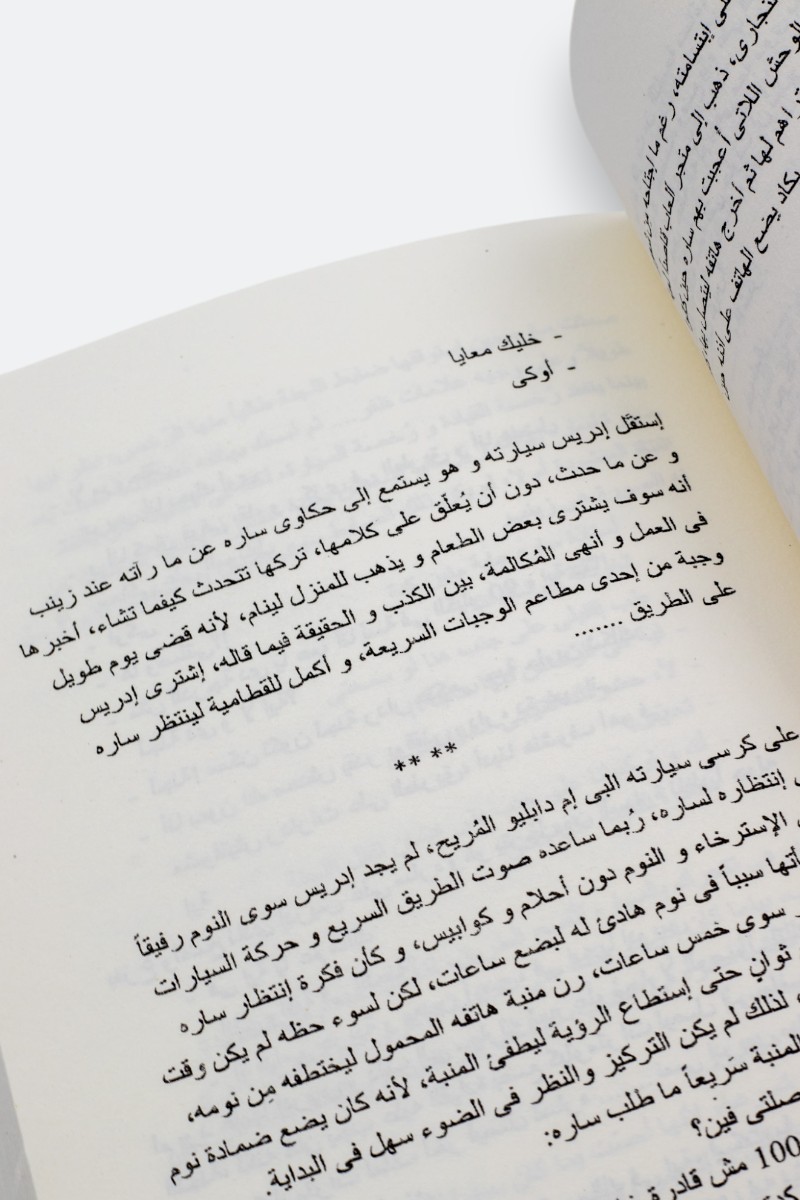 إبتسامته، رغم ما إجتاحه من
ذهب إلى متجر العاب
الوحش اللاتى أعجبت بهم ساره حين
لها ثم أخرج هاتفه ليتصل بها
يكاد يضع الهاتف على أذنه
- خليك معايا
- أوكى
إستقّل إدريس سيارته و هو يستمع إلى حكاوى ساره عن ما رآته عند زينب
و عن ما حدث، دون أن يُعلّق على كلامها، تركها تتحدث كيفما تشاء، أخبرها
أنه سوف يشترى بعض الطعام و يذهب للمنزل لينام، لأنه قضى يوم طويل
فى العمل و أنهى المُكالمة، بين الكذب و الحقيقة فيما قاله، إشترى إدريس
وجبة من إحدى مطاعم الوجبات السريعة، و أكمل للقطامية لينتظر ساره
على الطريق .......
** **
على كرسى سيارته البى إم دابليو المُريح، لم يجد إدريس سوى النوم رفيقاً
إنتظاره لساره، رُبما ساعده صوت الطريق السريع و حركة السيارات
الإسترخاء و النوم دون أحلام و كوابيس، و كأن فكرة إنتظار ساره
سبباً فى نوم هادئ له لبضع ساعات، لكن لسوء حظه لم يكن وقت
سوى خمس ساعات، رن منبة هاتفه المحمول ليختطفه مِن نومه،
ثوانٍ حتى إستطاع الرؤية ليطفئ المنبة، لأنه كان يضع ضمادة نوم
لذلك لم يكن التركيز والنظر فى الضوء سهل فى البداية.
المنبة سَريعاً ما طلب ساره:
فين؟
100 مش